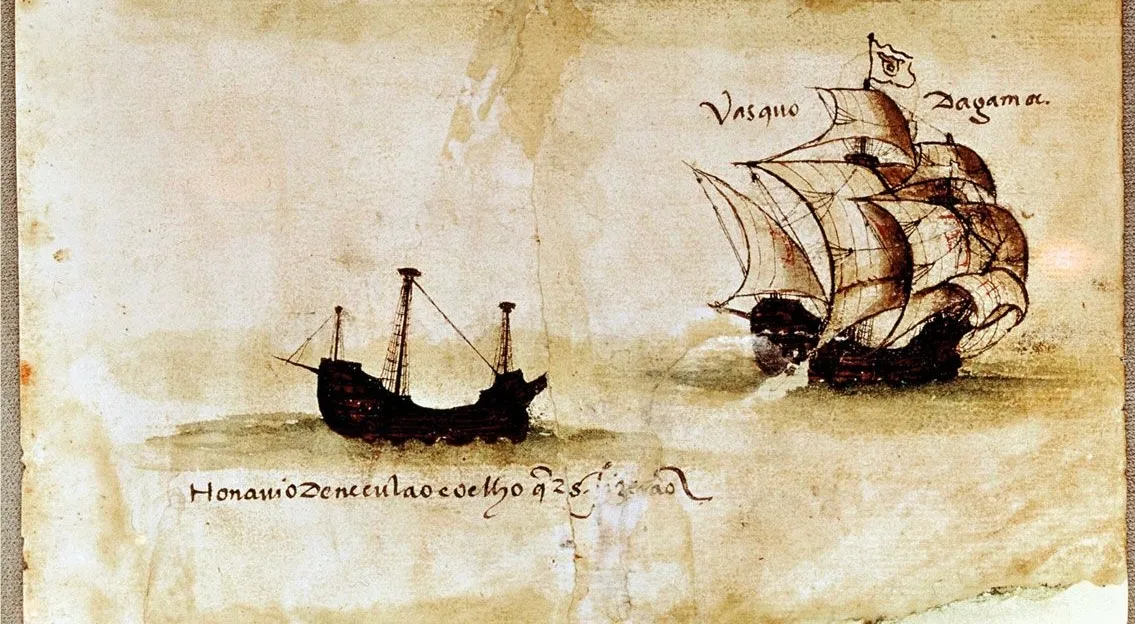 Vasquo Dagama.
Honauio De neculao coelho q̃